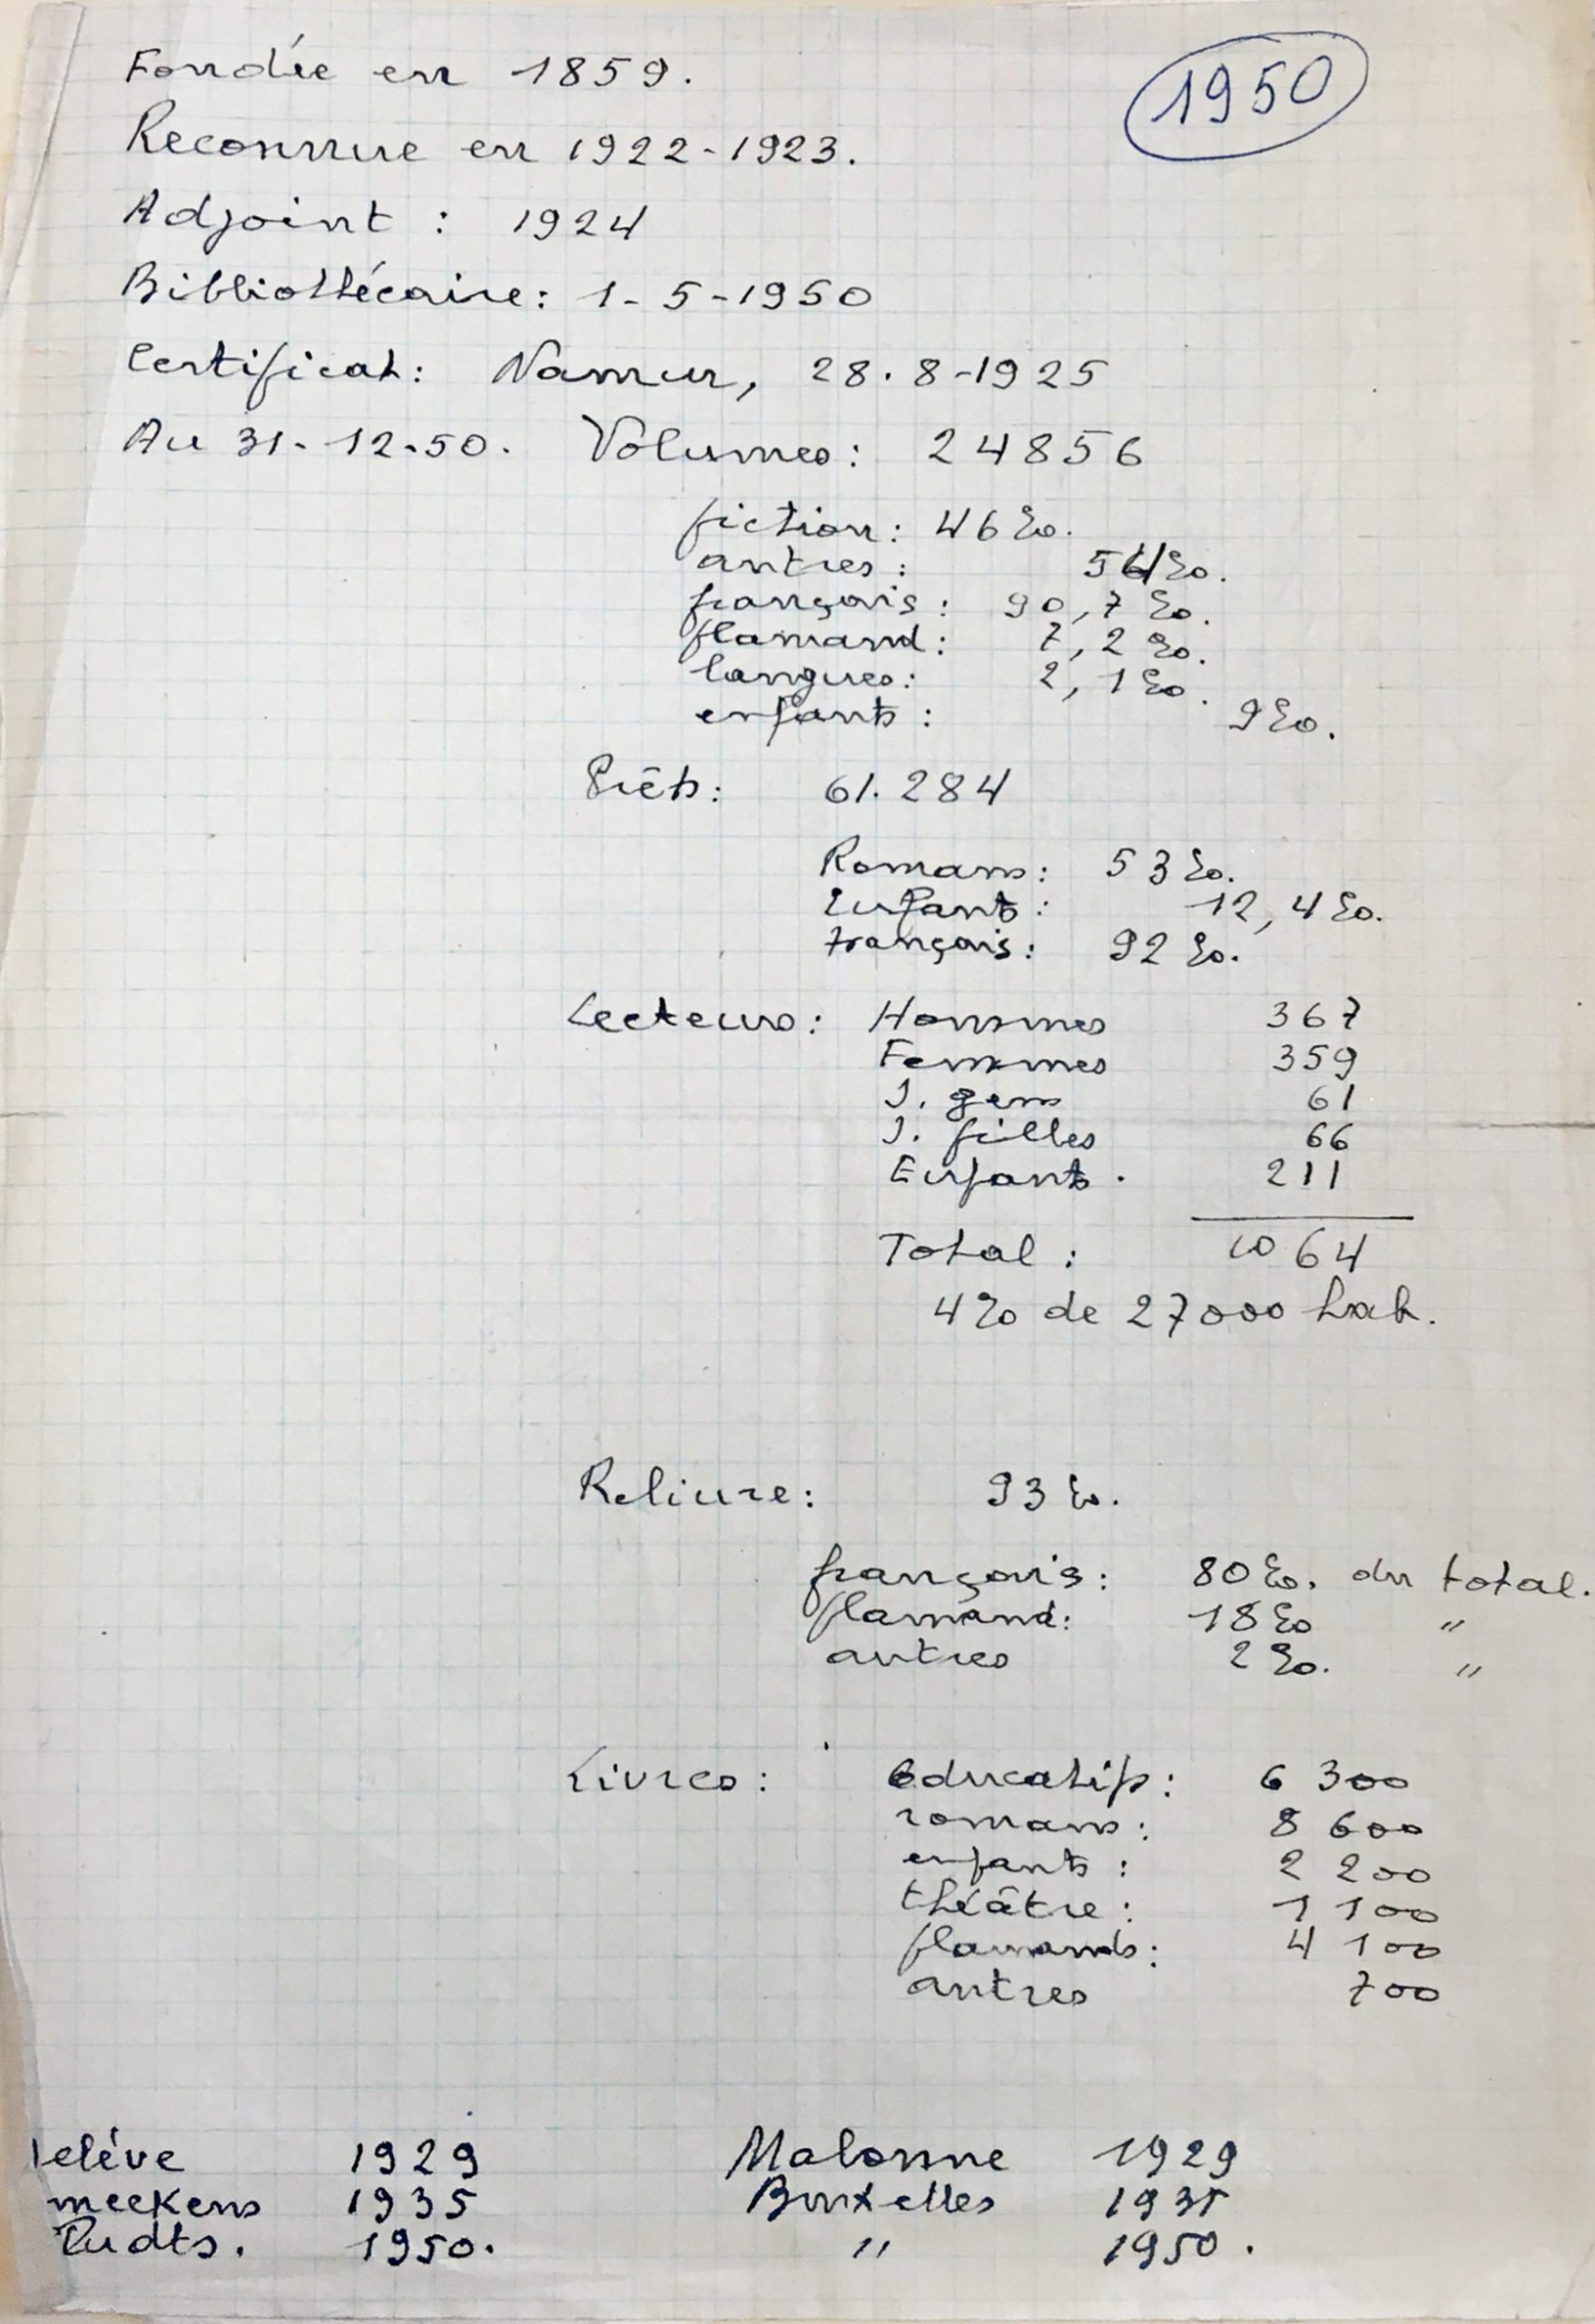 Fondée en 1859.
1950
Reconnue en 1922-1923.
Adjoint : 1924
Bibliothécaire: 1-5-1950
Certificat: Namur, 28.8-1925
Au 31-12-50. Volumes: 24856
fiction: 46%.
autres: 54%.
français: 90,7%.
flamand: 7,2%.
langues: 2,1%.
enfants: 9%.
Prêts: 61.284
Romans: 53%.
Enfants: 12,4%.
français: 92%.
Lecteurs: Hommes 367
Femmes 359
J. gens 61
J. filles 66
Enfants. 211
Total: 1064
4% de 27000 hab.
Reliure: 93%.
français: 80%. du total.
flamand: 18% "
autres 2%. "
Livres: éducatifs: 6 300
romans: 8 600
enfants: 2 200
théâtre: 1 100
flamands: 4 100
autres 700
elève 1929 Malonne 1929
meekens 1935 Bruxelles 1935
1950. " 1950.